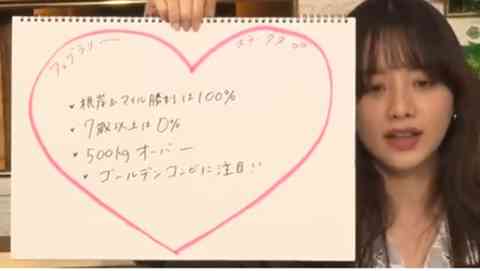 フェブラリー ステークス
・根岸&マイル勝利は100%
・7歳以上は0%
・500kgオーバー
・ゴールデンコンビに注目!!